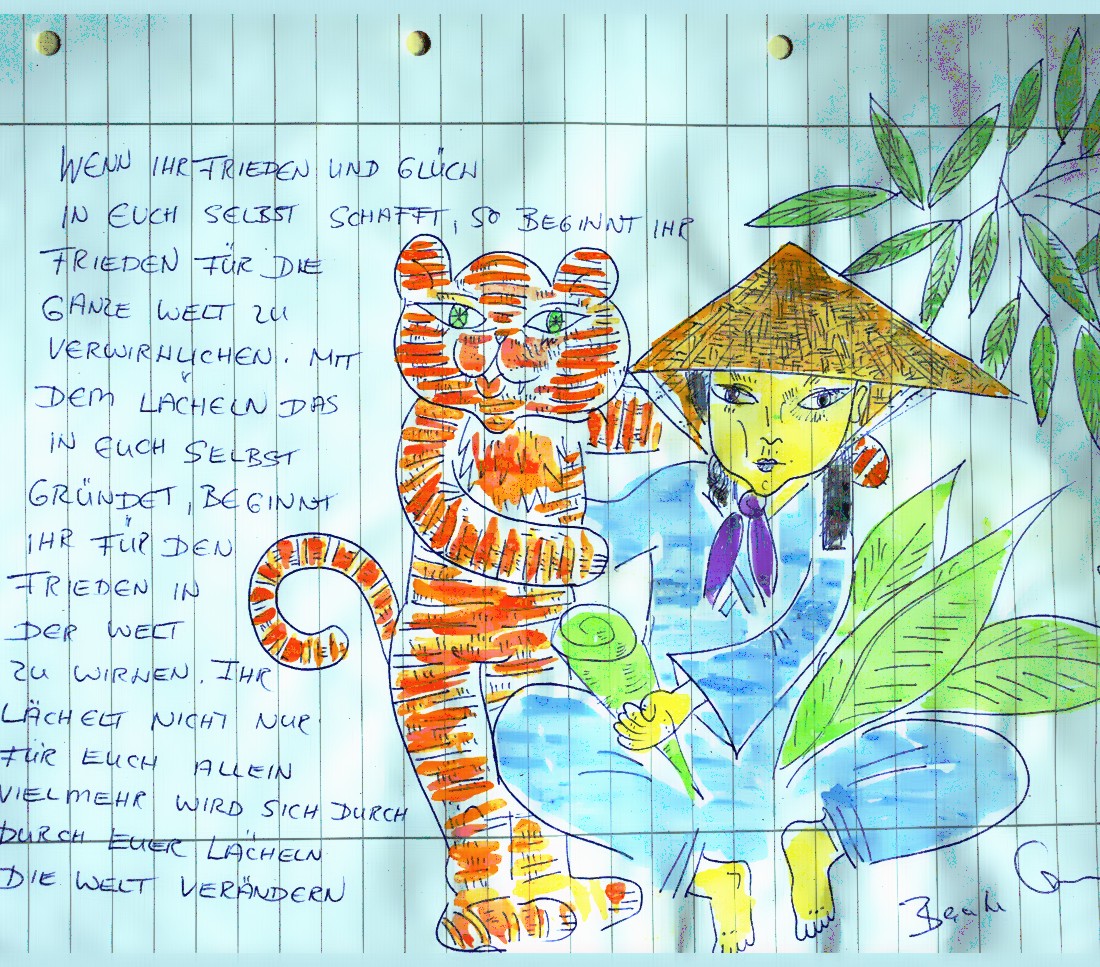 WENN IHR FRIEDEN UND GLÜCK
IN EUCH SELBST SCHAFFT, SO BEGINNT IHR
FRIEDEN FÜR DIE
GANZE WELT ZU
VERWIRKLICHEN. MIT
DEM LÄCHELN DAS
IN EUCH SELBST
GRÜNDET, BEGINNT
IHR FÜR DEN
FRIEDEN IN
DER WELT
ZU WIRKEN. IHR
LÄCHELT NICHT NUR
FÜR EUCH ALLEIN
VIELMEHR WIRD SICH DURCH
DURCH EUER LÄCHELN
DIE WELT VERÄNDERN